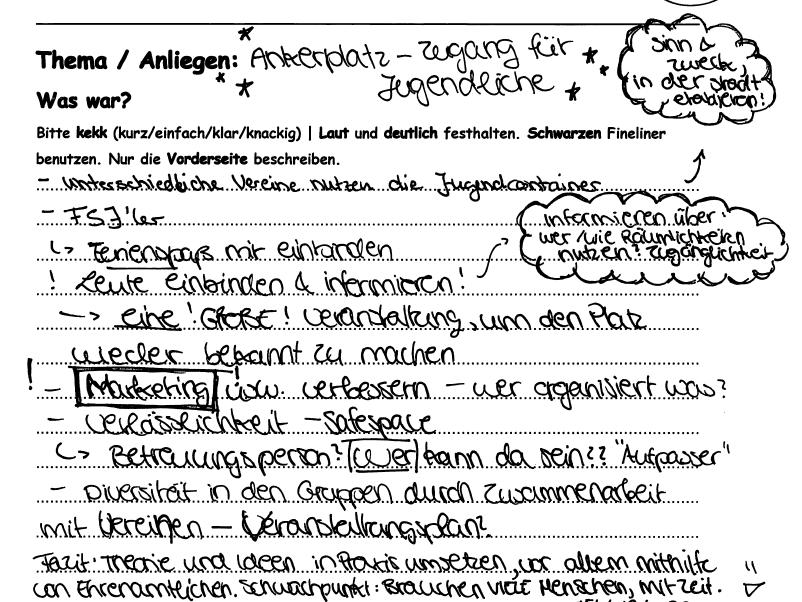 Thema / Anliegen: Ankerplatz – Zugang für
Jugendliche
Sinn &
Zweck
in der Stadt
etablieren!
Was war?
Bitte kekk (kurz/einfach/klar/knackig) | Laut und deutlich festhalten. Schwarzen Fineliner
benutzen. Nur die Vorderseite beschreiben.
- unterschiedliche Vereine nutzen die Jugendcontainer
- FSJ'ler
↳ Ferienspaß mit einbinden
informieren über:
wer / wie Räumlichkeiten
nutzen? Zugänglichkeit
! Leute einbinden & informieren!
–> eine ! GROßE ! Veranstaltung, um den Platz
wieder bekannt zu machen
! - Marketing! usw. verbessern – wer organisiert was?
- Verlässlichkeit – Safespace
↳ Betreuungsperson? Wer kann da sein?? "Aufpasser"
- Diversität in den Gruppen durch Zusammenarbeit
mit Vereinen – Veranstaltungsplan?
Fazit: Theorie und Ideen in Praxis umsetzen, vor allem mithilfe
von Ehrenamtlichen. Schwachpunkt: Brauchen viele Menschen, mit Zeit.